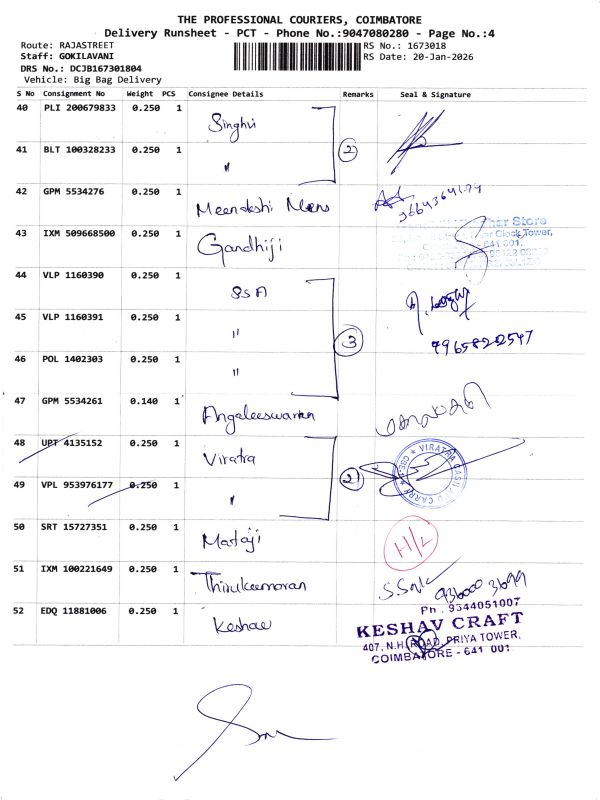 THE PROFESSIONAL COURIERS, COIMBATORE
Delivery Runsheet - PCT - Phone No.:9047080280 - Page No.:4
Route: RAJASTREET
RS No.: 1673018
Staff: GOKILAVANI
RS Date: 20-Jan-2026
DRS No.: DCJB167301804
Vehicle: Big Bag Delivery
S No Consignment No Weight PCS Consignee Details Remarks Seal & Signature
40 PLI 200679833 0.250 1 Singhvi
2
41 BLT 100328233 0.250 1 "
42 GPM 5534276 0.250 1 Meenakshi Mens
43 IXM 509668500 0.250 1 Gandhiji
Store
Clock Tower,
- 641 001.
44 VLP 1160390 0.250 1 SSA
45 VLP 1160391 0.250 1 "
3 7965822547
46 POL 1402303 0.250 1 "
47 GPM 5534261 0.140 1 Angaleeswaran
48 UPT 4135152 0.250 1 Viratra
VIRATRA CASH AND CARRY
2
49 VPL 953976177 0.250 1 "
50 SRT 15727351 0.250 1 Mataji H/L
51 IXM 100221649 0.250 1 Thirukumaran
936000 3699
52 EDQ 11881006 0.250 1 Keshav
Ph . 9344051007
KESHAV CRAFT
407, N.H. ROAD, PRIYA TOWER,
COIMBATORE - 641 001